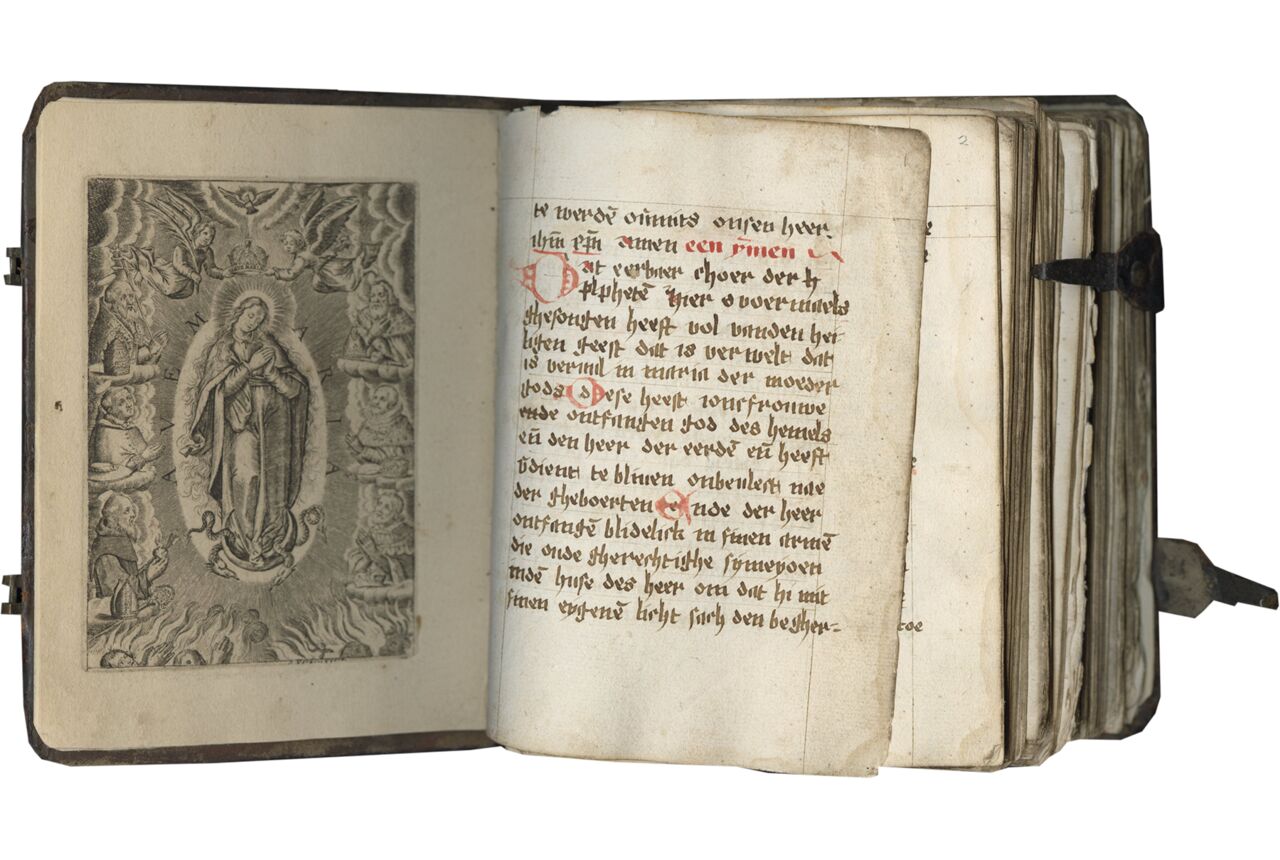 AVE MARIA
2
te werdē ou̅mits onsen heer
ih̅m xp̅m amen een ymen
Dat eerbaer choer der h
p̱lphetē hier voermaels
ghesongen heeft vol vanden hei
ligen geest dat is verwelt dat
is vervul in maria der moeder
gods Dese heeft ioncfrouwe
ende ontfangen god des hemels
en̅ den heer der eerdē en̅ heeft
v̅dient te bliuen onbeulect nae
der gheboerten Ende der heer
ontfangē blidelick in sinen armē
die oude gherechtighe symeyoen
inden̄ huse des heer om dat hi mit
sinen eygenē licht sach den begher=
toe